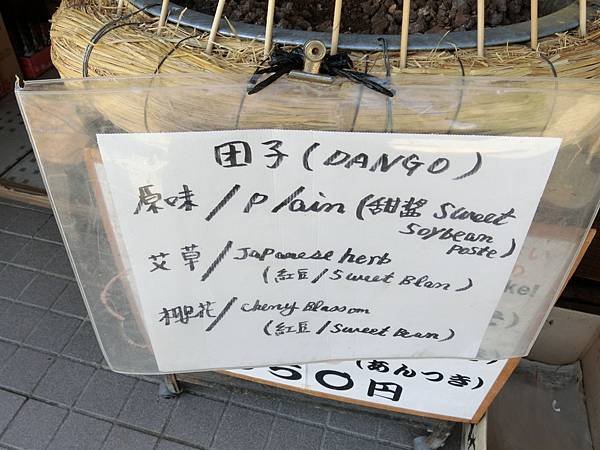 団子(DANGO)
原味/Plain(甜醬 Sweet
Soybean
Paste)
艾草/Japanese herb
(紅豆/Sweet Blan)
櫻花/Cherry Blassom
(紅豆/Sweet Bean)
(あんつき)
50円